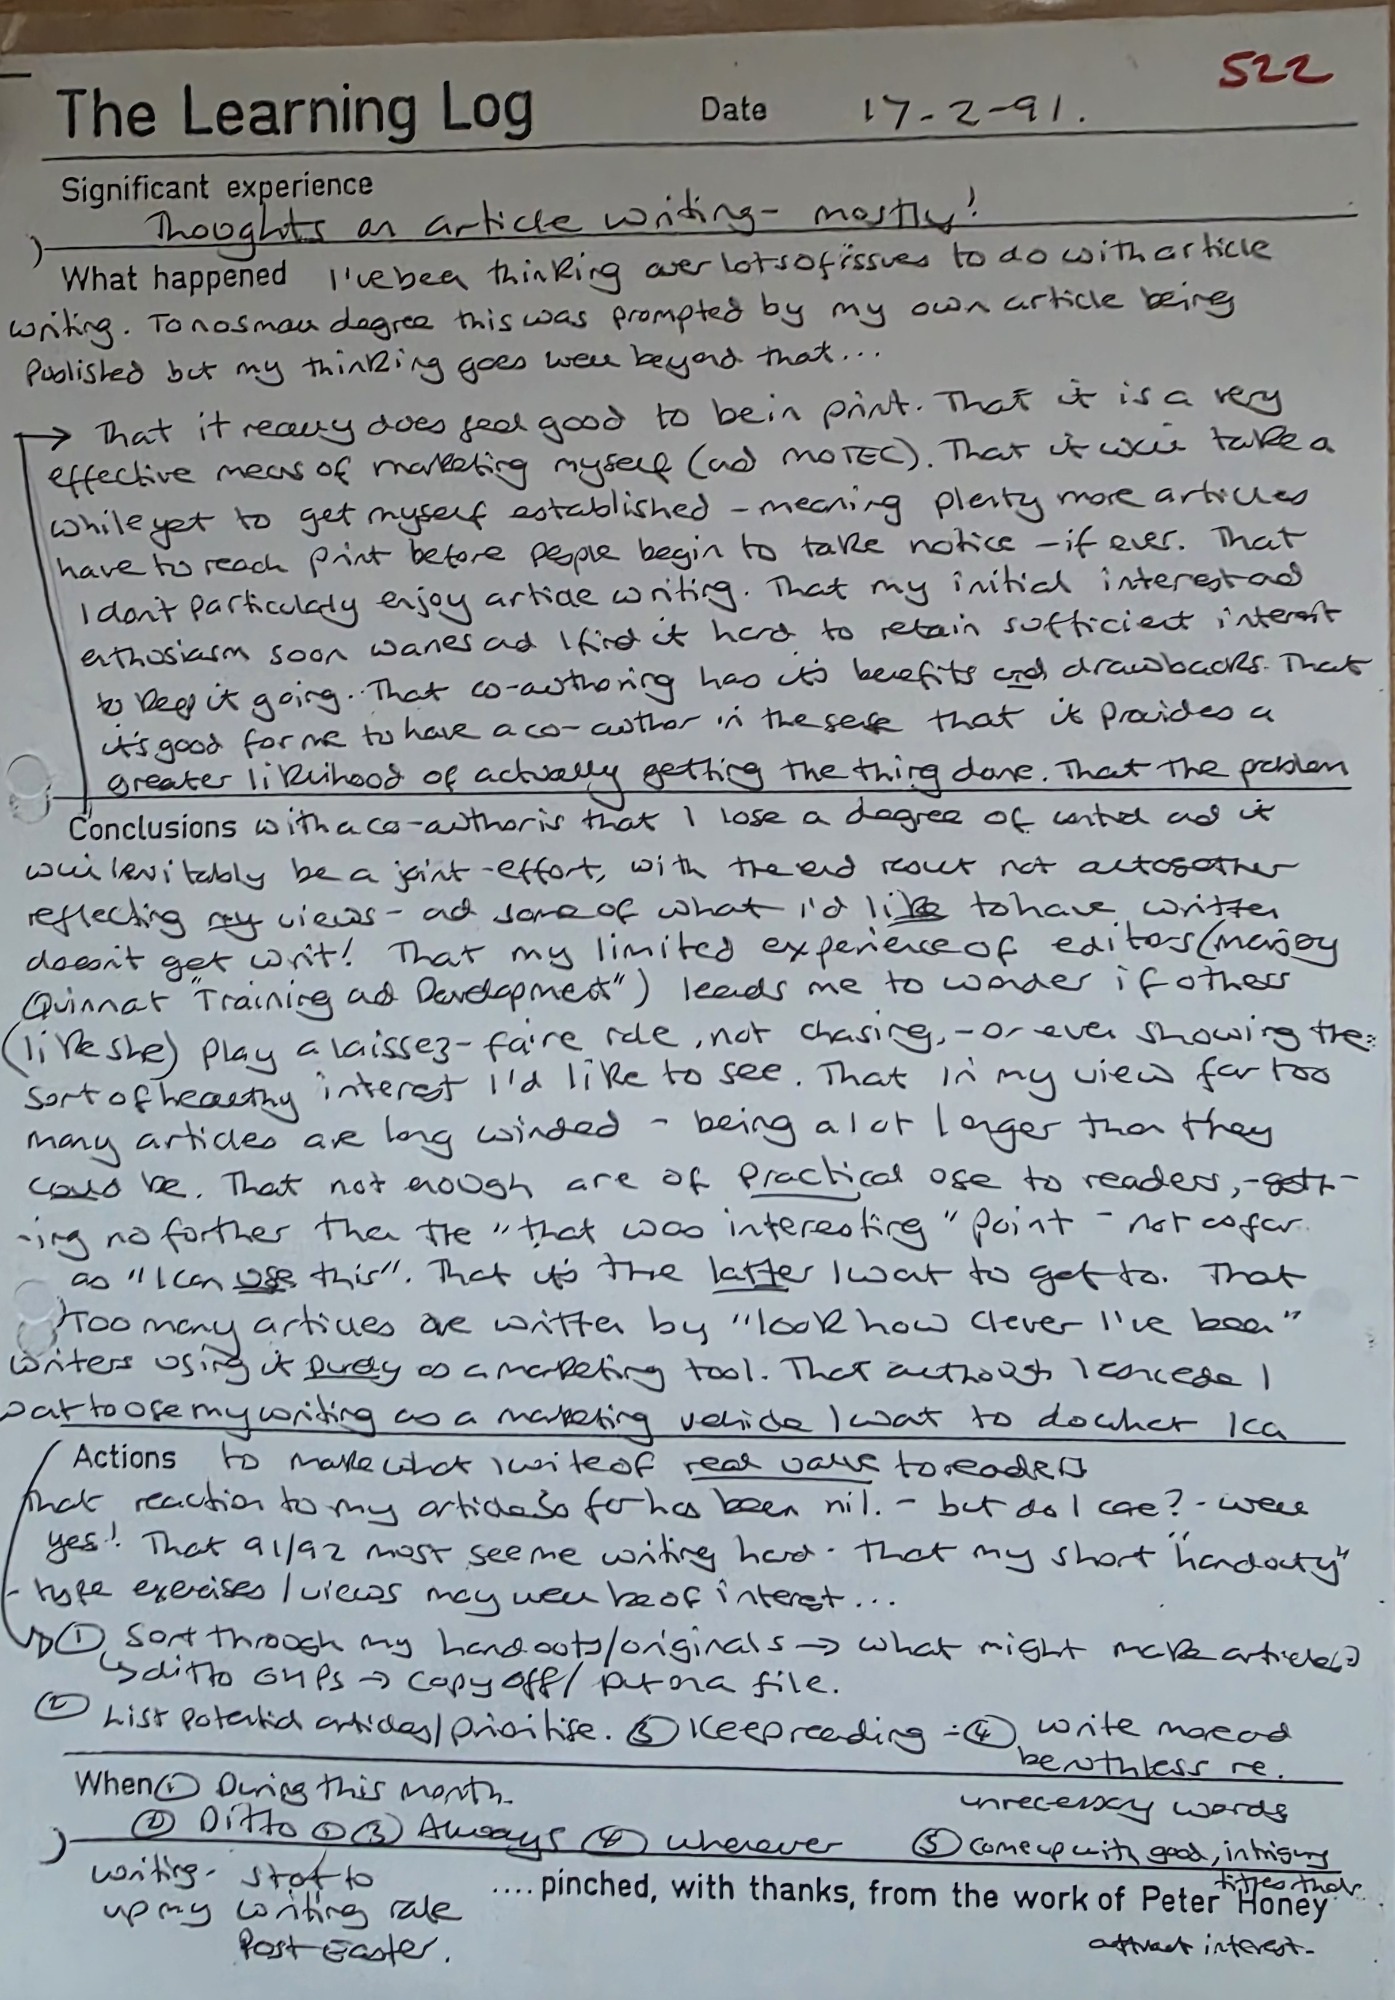 522
The Learning Log Date 17-2-91.
Significant experience
Thoughts on article writing - mostly!
What happened I've been thinking over lots of issues to do with article
writing. To no small degree this was prompted by my own article being
published but my thinking goes well beyond that...
→ That it really does feel good to be in print. That it is a very
effective means of marketing myself (and MOTEC). That it will take a
while yet to get myself established - meaning plenty more articles
have to reach print before people begin to take notice - if ever. That
I don't particularly enjoy article writing. That my initial interest and
enthusiasm soon wanes and I find it hard to retain sufficient interest
to keep it going. That co-authoring has its benefits and drawbacks. That
it's good for me to have a co-author in the sense that it provides a
greater likelihood of actually getting the thing done. That the problem
Conclusions with a co-author is that I lose a degree of control and it
will inevitably be a joint-effort, with the end result not altogether
reflecting my views - and some of what I'd like to have written
doesn't get writ! That my limited experience of editors (
"Training and Development") leads me to wonder if others
(like she) play a laissez-faire role, not chasing, - or even showing the
sort of healthy interest I'd like to see. That in my view far too
many articles are long winded - being a lot longer than they
could be. That not enough are of practical use to readers, - gett-
-ing no further than the "that was interesting" point - not as far
as "I can use this". That it's the latter I want to get to. That
too many articles are written by "look how clever I've been"
writers using it purely as a marketing tool. That although I concede I
want to use my writing as a marketing vehicle I want to do what I can
Actions to make what I write of real value to readers
That reaction to my article so far has been nil. - but do I care? - well
yes! That 91/92 must see me writing hard. That my short "handouty"
- type exercises/views may well be of interest...
① Sort through my handouts/originals → what might make articles?
↳ ditto GHPs → copy off/ put on a file.
② List potential articles/prioritise. ③ Keep reading - ④ write more and
be ruthless re.
unnecessary words
When ① During this month.
② Ditto ① ③ Always ④ wherever ⑤ come up with good, intriguing
titles that
attract interest.
writing. start to
up my writing rate
Post Easter.
.... pinched, with thanks, from the work of Peter Honey